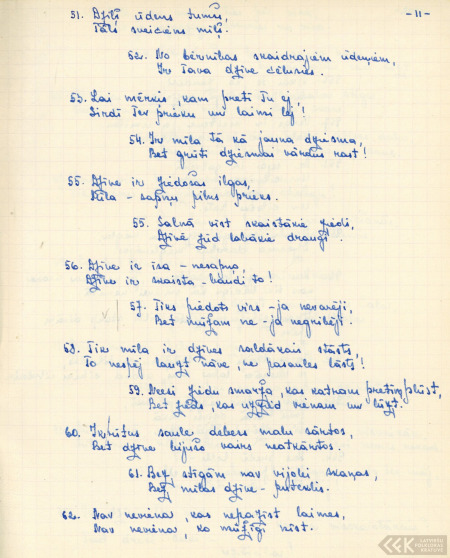 51. Dziļš ūdens tumšs,
-11-
Tāls sveiciens mīļš.
52. No bērnības skaidrajiem ūdeņiem,
Ir Tava dzīve cēlusies.
53. Lai mērķis, kam pretī Tu ej,
Sirdī Tev prieku un laimi lej!
54. Ir mīla tā kā jauna dziesma,
Bet grūti dziesmai vārdus rast!
55. Dzīve ir ziedošas ilgas,
Mīla - sapņu pilns prieks.
55. Salnā vīst skaistākie ziedi,
Dzīvē zūd labākie draugi.
56. Dzīve ir īsa - nesapņo,
Dzīve ir skaista - baudi to!
57. Tiks piedots viss - ja nevarēji,
Bet mūžam ne - ja negribēji.
58. Tiks mīla ir dzīves saldākais stāsts,
To nespēj lauzt nāve, ne pasaules lāsts!
59. Neesi ziedu smarža, kas katram pretim plūst,
Bet zieds, kas uzzied vienam un lūzt.
60. Iznītus saule debess malu sārtos,
Bet dzīve bijušo vairs neatkārtos.
61. Bez stīgām nav vijolei skaņas,
Bez mīlas dzīve - puteklis.
62. Nav neviena, kas nepazīst laimes,
Nav neviena, ko mūžīgi nīst.
LATVIEŠU
FOLKLORAS
KRĀTUVE